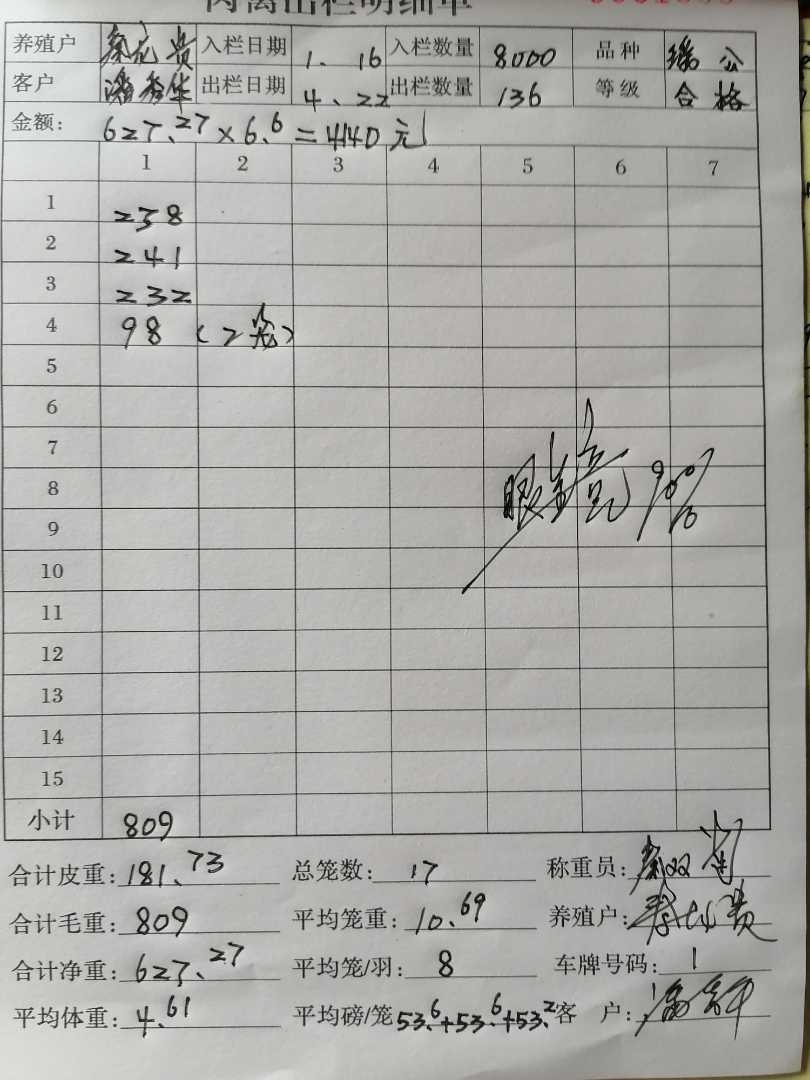 肉禽出栏明细单
养殖户 秦元贵 入栏日期 1.16 入栏数量 8000 品种 瑶公
客户 潘秀华 出栏日期 4.22 出栏数量 136 等级 合格
金额: 627.27×6.6=4140元
1 2 3 4 5 6 7
1 238
2 241
3 232
4 98 (2笼)
5
6
7
8 眼镜
9
10
11
12
13
14
15
小计 809
合计皮重: 181.73 总笼数: 17 称重员:
合计毛重: 809 平均笼重: 10.69 养殖户:
合计净重: 627.27 平均笼/羽: 8 车牌号码: 1
平均体重: 4.61 平均磅/笼 53.6+53.6+53.2 客 户: